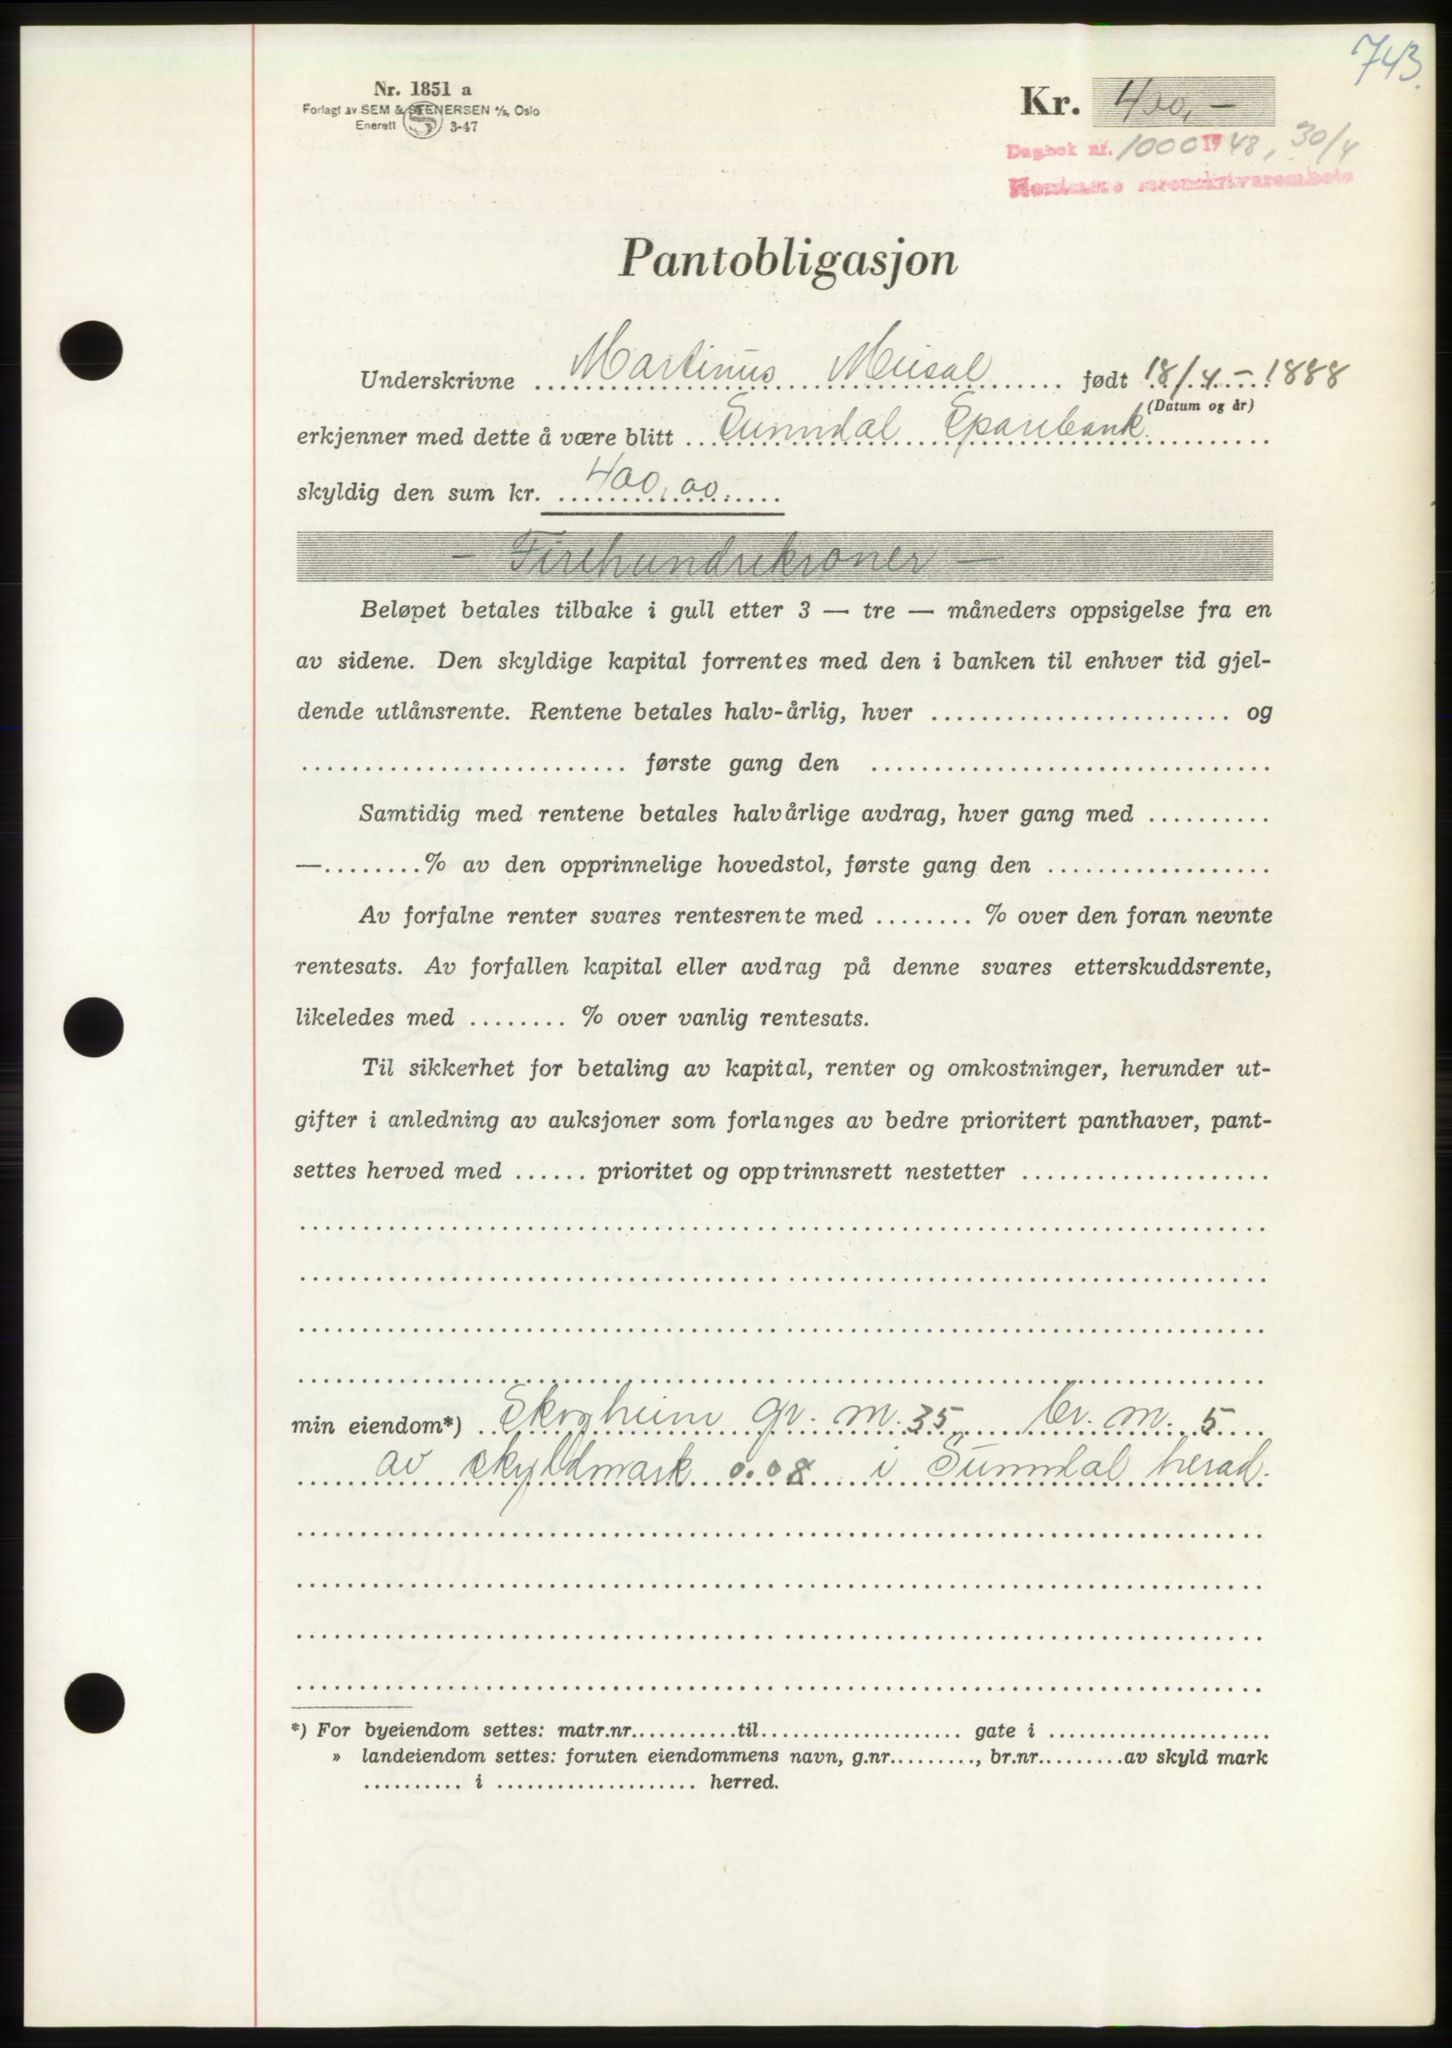 743.
Nr. 1851 a
Forlagt av SEM & STENERSEN A/S, Oslo
Enerett S 3-47
Kr. 400,-
Dagbok nr. 1000 1948, 30/4
Nordmøre sorenskrivarembete
Pantobligasjon
Underskrivne Martinus Musal født 18/4-1888
(Datum og år)
erkjenner med dette å være blitt Sunndal Sparebank.
skyldig den sum kr. 400,00.
- Firehundrekroner -
Beløpet betales tilbake i gull etter 3 — tre — måneders oppsigelse fra en
av sidene. Den skyldige kapital forrentes med den i banken til enhver tid gjel-
dende utlånsrente. Rentene betales halv-årlig, hver .......................... og
.......................... første gang den ................................
Samtidig med rentene betales halvårlige avdrag, hver gang med ..........
—........% av den opprinnelige hovedstol, første gang den ..................
Av forfalne renter svares rentesrente med ........ % over den foran nevnte
rentesats. Av forfallen kapital eller avdrag på denne svares etterskuddsrente,
likeledes med ........ % over vanlig rentesats.
Til sikkerhet for betaling av kapital, renter og omkostninger, herunder ut-
gifter i anledning av auksjoner som forlanges av bedre prioritert panthaver, pant-
settes herved med ...... prioritet og opptrinnsrett nestetter ....................
min eiendom*) Skogheim gr. nr. 35 br. nr. 5
av skyldmark 0.08 i Sunndal herad.
*) For byeiendom settes: matr.nr...........til.................... gate i ......................
» landeiendom settes: foruten eiendommens navn, g.nr........., br.nr.........av skyld mark
.......... i .................... herred.